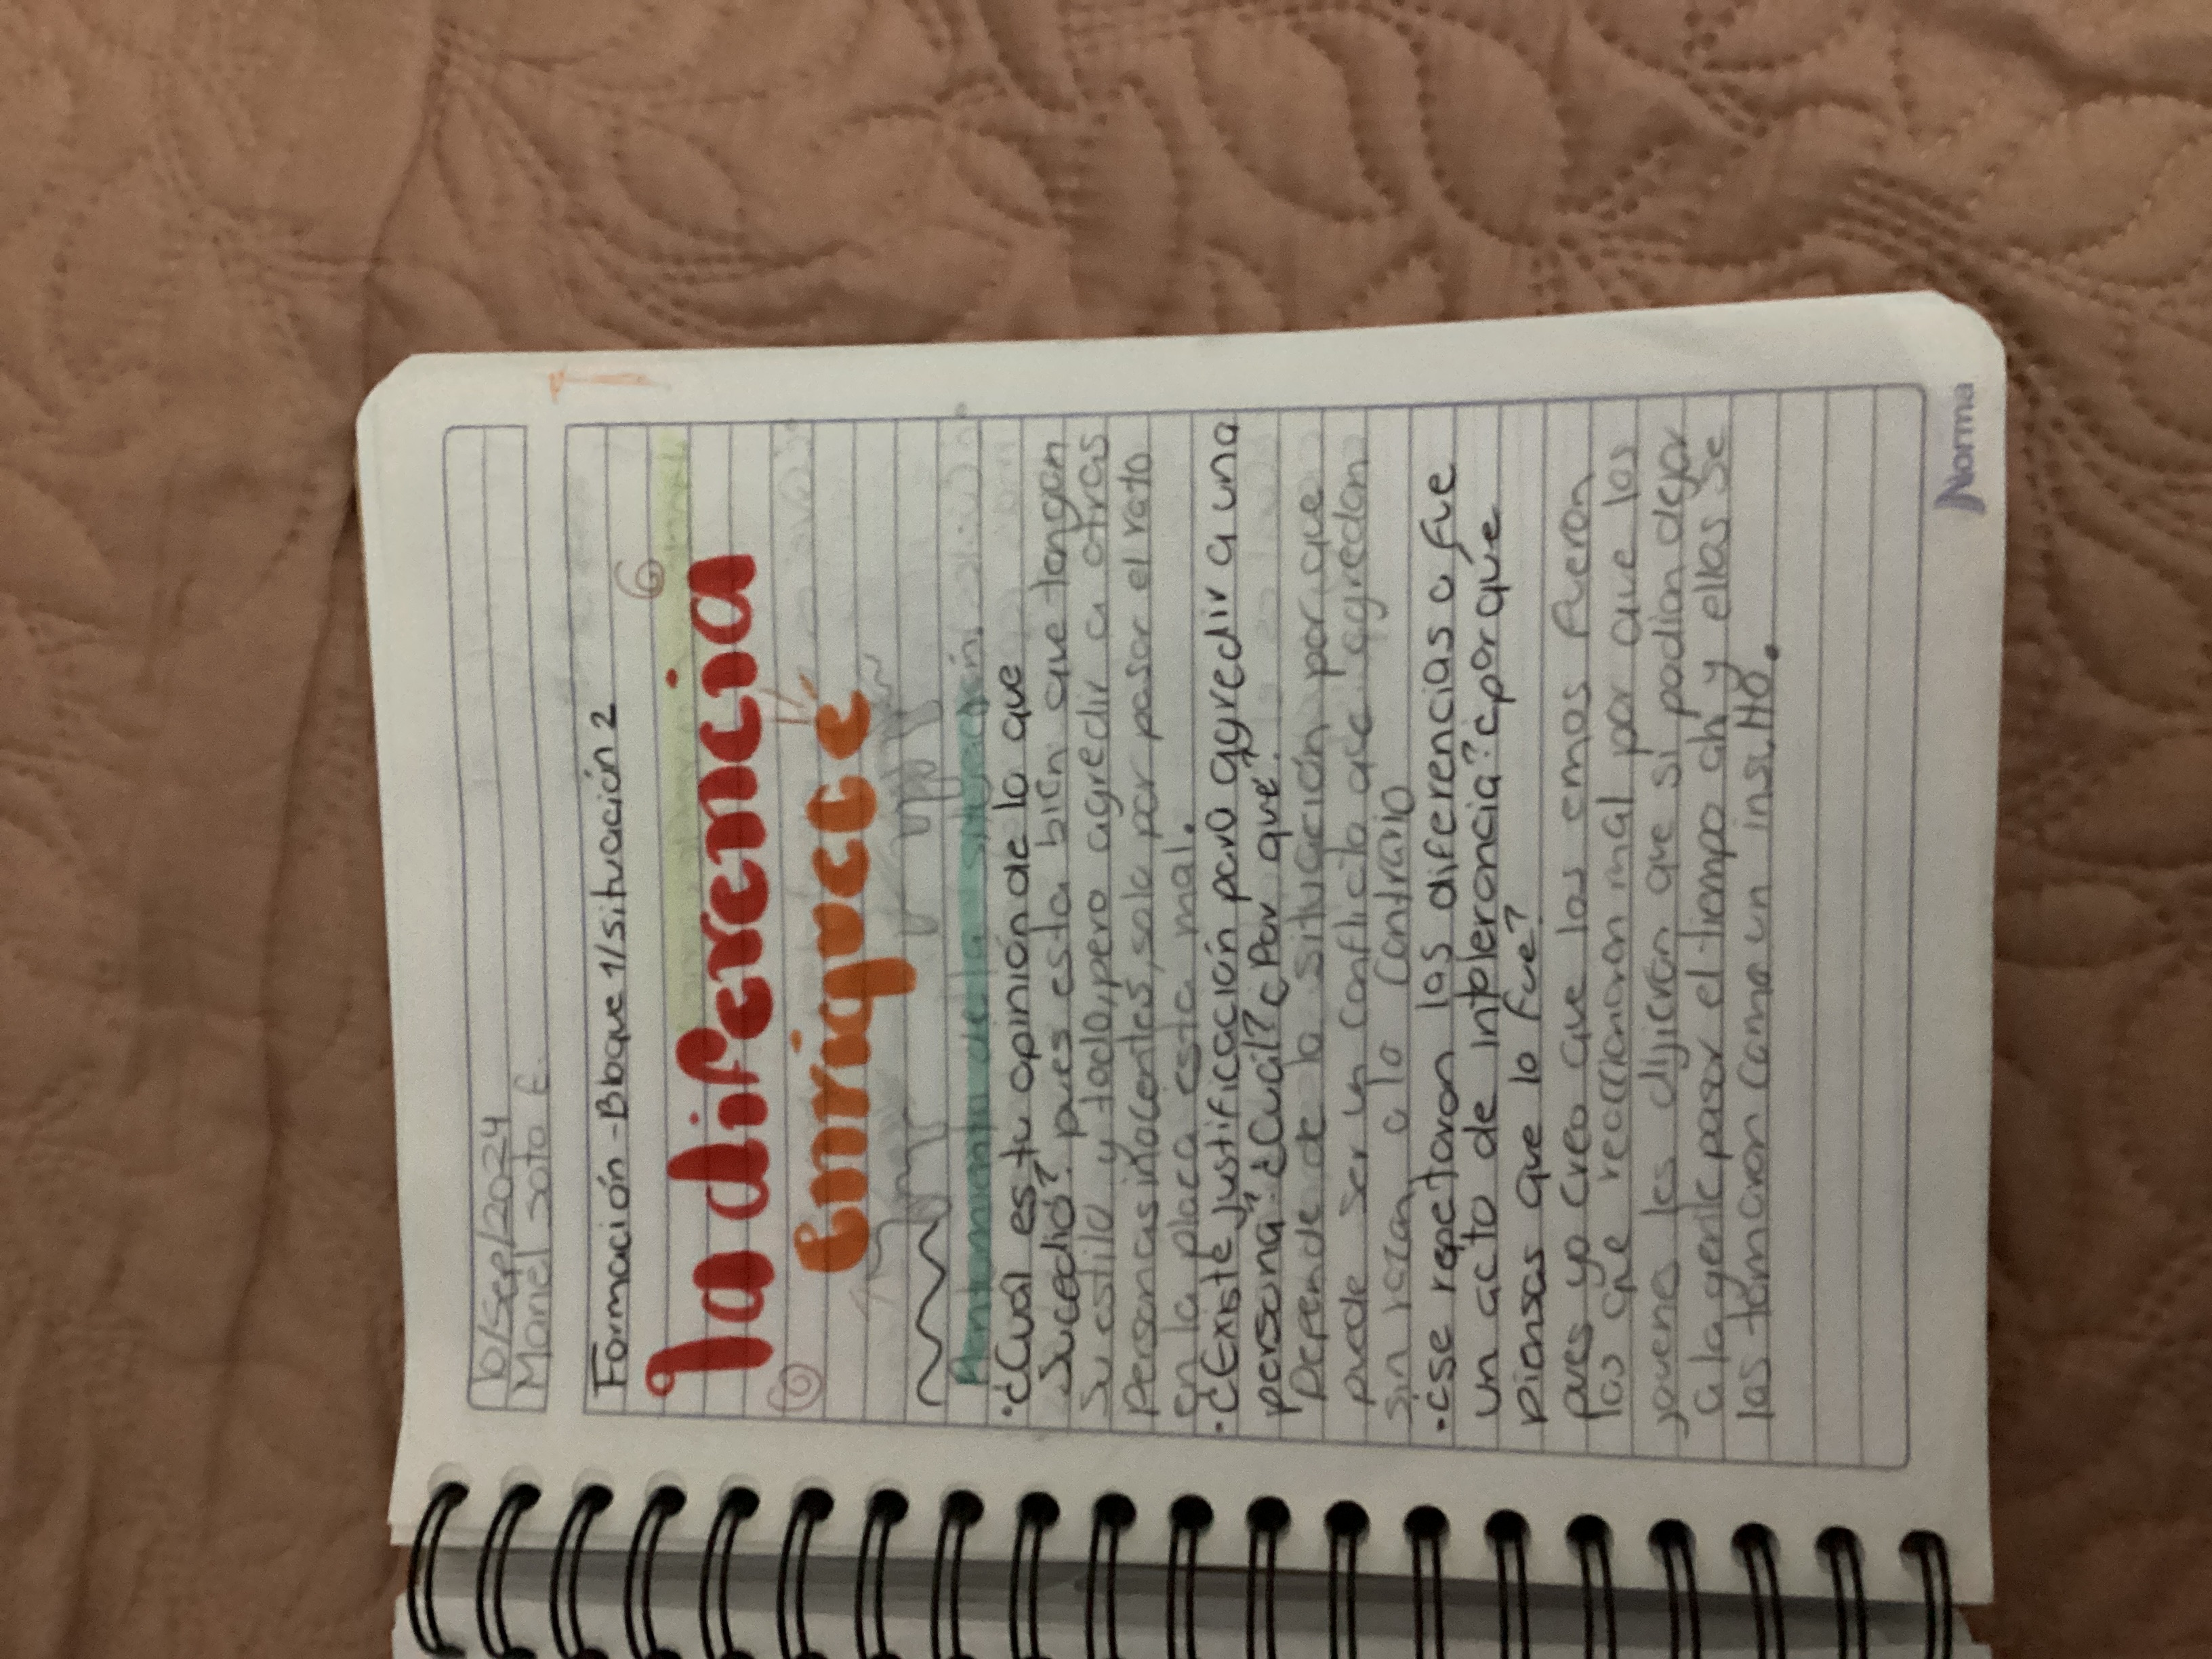 10/Sep/2024
Manel Soto E.
Formación - Bloque 1/situación 2
la diferencia
Enriquece
de la situación.
·¿Cual es tu opinión de lo que
Sucedió? pues esta bien que tengan
su estilo y todo, pero agredir a otras
personas inocentes, solo por pasar el rato
en la placa esta mal.
·¿Existe justificación para agredir a una
persona? ¿Cuál? ¿Por qué?
Depende de la situación por que
puede ser un conflicto que agredan
sin razon o lo contrario
·¿se repetaron las diferencias o fue
un acto de intolerancia? ¿por qué
piensas que lo fue?
pues yo creo que los emos fueron
los que reaccionaron mal por que los
jovenes les dijieron que si podian dejar
a la gente pasar el tiempo ah y ellos se
las tomaron como un insulto.
Norma